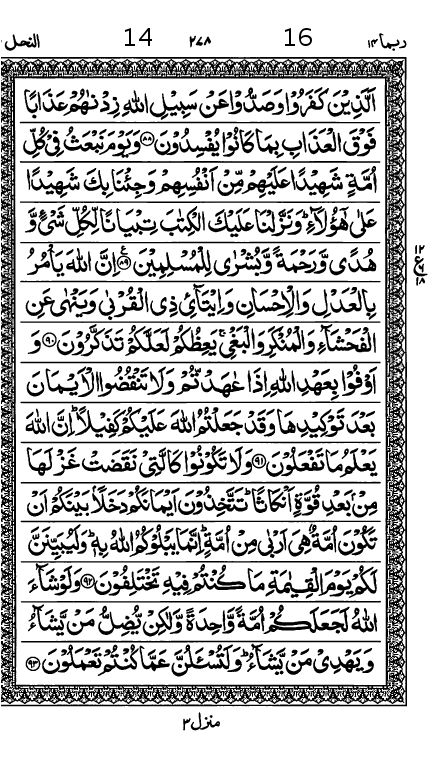 ربما ۱۴ 16 ۲۷۸ 14 النحل
اَلَّذِيْنَ كَفَرُوْا وَصَدُّوْا عَنْ سَبِيْلِ اللّٰهِ زِدْنٰهُمْ عَذَابًا
فَوْقَ الْعَذَابِ بِمَا كَانُوْا يُفْسِدُوْنَ ۸۸ وَيَوْمَ نَبْعَثُ فِيْ كُلِّ
اُمَّةٍ شَهِيْدًا عَلَيْهِمْ مِّنْ اَنْفُسِهِمْ وَجِئْنَا بِكَ شَهِيْدًا
عَلٰى هٰٓؤُلَآءِ ؕ وَنَزَّلْنَا عَلَيْكَ الْكِتٰبَ تِبْيَانًا لِّكُلِّ شَيْءٍ وَّ
هُدًى وَّرَحْمَةً وَّبُشْرٰى لِلْمُسْلِمِيْنَ ۸۹ اِنَّ اللّٰهَ يَاْمُرُ
بِالْعَدْلِ وَالْاِحْسَانِ وَاِيْتَآئِ ذِي الْقُرْبٰى وَيَنْهٰى عَنِ
الْفَحْشَآءِ وَالْمُنْكَرِ وَالْبَغْيِ ۚ يَعِظُكُمْ لَعَلَّكُمْ تَذَكَّرُوْنَ ۹۰ وَ
اَوْفُوْا بِعَهْدِ اللّٰهِ اِذَا عٰهَدْتُّمْ وَلَا تَنْقُضُوا الْاَيْمَانَ
بَعْدَ تَوْكِيْدِهَا وَقَدْ جَعَلْتُمُ اللّٰهَ عَلَيْكُمْ كَفِيْلًا ؕ اِنَّ اللّٰهَ
يَعْلَمُ مَا تَفْعَلُوْنَ ۹۱ وَلَا تَكُوْنُوْا كَالَّتِيْ نَقَضَتْ غَزْلَهَا
مِنْۢ بَعْدِ قُوَّةٍ اَنْكَاثًا ؕ تَتَّخِذُوْنَ اَيْمَانَكُمْ دَخَلًاۢ بَيْنَكُمْ اَنْ
تَكُوْنَ اُمَّةٌ هِيَ اَرْبٰى مِنْ اُمَّةٍ ؕ اِنَّمَا يَبْلُوْكُمُ اللّٰهُ بِهٖ ؕ وَلَيُبَيِّنَنَّ
لَكُمْ يَوْمَ الْقِيٰمَةِ مَا كُنْتُمْ فِيْهِ تَخْتَلِفُوْنَ ۹۲ وَلَوْ شَآءَ
اللّٰهُ لَجَعَلَكُمْ اُمَّةً وَّاحِدَةً وَّلٰكِنْ يُّضِلُّ مَنْ يَّشَآءُ
وَيَهْدِيْ مَنْ يَّشَآءُ ؕ وَلَتُسْـَٔلُنَّ عَمَّا كُنْتُمْ تَعْمَلُوْنَ ۹۳
۱۲
ع
۱۸
منزل ۳